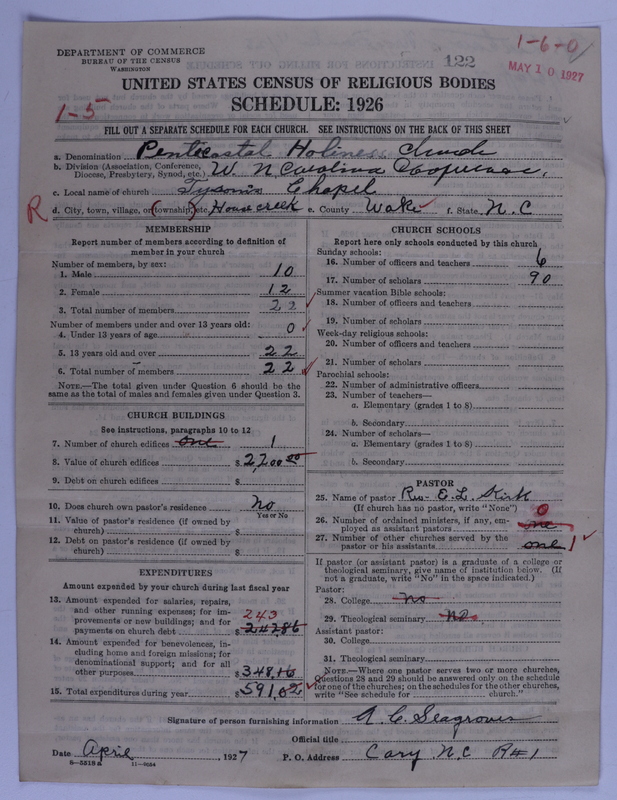 1-6-0
DEPARTMENT OF COMMERCE
BUREAU OF THE CENSUS
WASHINGTON
122
MAY 10 1927
UNITED STATES CENSUS OF RELIGIOUS BODIES
SCHEDULE: 1926
1-5
FILL OUT A SEPARATE SCHEDULE FOR EACH CHURCH. SEE INSTRUCTIONS ON THE BACK OF THIS SHEET
a. Denomination Pentecostal Holiness Church
b. Division (Association, Conference, Diocese, Presbytery, Synod, etc.) W. N Carolina
c. Local name of church Tyson's Chapel
R d. City, town, village, or (township) etc. House creek e. County Wake f. State N. C
MEMBERSHIP
Report number of members according to definition of
member in your church
Number of members, by sex:
1. Male 10
2. Female 12
3. Total number of members 22
Number of members under and over 13 years old:
4. Under 13 years of age 0
5. 13 years old and over 22
6. Total number of members 22
NOTE.—The total given under Question 6 should be
same as the total of males and females given under Question 3.
CHURCH BUILDINGS
See instructions, paragraphs 10 to 12
7. Number of church edifices one 1
8. Value of church edifices $2,200.00
9. Debt on church edifices $
10. Does church own pastor's residence No
Yes or No
11. Value of pastor's residence (if owned by
church) $
12. Debt on pastor's residence (if owned by
church) $
EXPENDITURES
Amount expended by your church during last fiscal year
13. Amount expended for salaries, repairs,
and other running expenses; for im-
provements or new buildings; and for 243
payments on church debt $242.86
14. Amount expended for benevolences, in-
cluding home and foreign missions; for
denominational support; and for all
other purposes $348.16
15. Total expenditures during year $591.02
CHURCH SCHOOLS
Report here only schools conducted by this church
Sunday schools:
16. Number of officers and teachers 6
17. Number of scholars 90
Summer vacation Bible schools:
18. Number of officers and teachers
19. Number of scholars
Week-day religious schools:
20. Number of officers and teachers
21. Number of scholars
Parochial schools:
22. Number of administrative officers
23. Number of teachers—
a. Elementary (grades 1 to 8)
b. Secondary
24. Number of scholars—
a. Elementary (grades 1 to 8)
b. Secondary
PASTOR
25. Name of pastor Rev. E. L.
(If church has no pastor, write "None")
26. Number of ordained ministers, if any, em- 0
ployed as assistant pastors one
27. Number of other churches served by the
pastor or his assistants one 1
If pastor (or assistant pastor) is a graduate of a college or
theological seminary, give name of institution below. (If
not a graduate, write "No" in the space indicated.)
Pastor:
28. College No
29. Theological seminary No
Assistant pastor:
30. College
31. Theological seminary
NOTE.—Where one pastor serves two or more churches,
Questions 28 and 29 should be answered only on the schedule
for one of the churches; on the schedules for the other churches,
write "See schedule for church."
Signature of person furnishing information A. C. Seagroves
Official title
Date April, 1927 P. O. Address Cary N.C R#1
8-5518a 11-9054